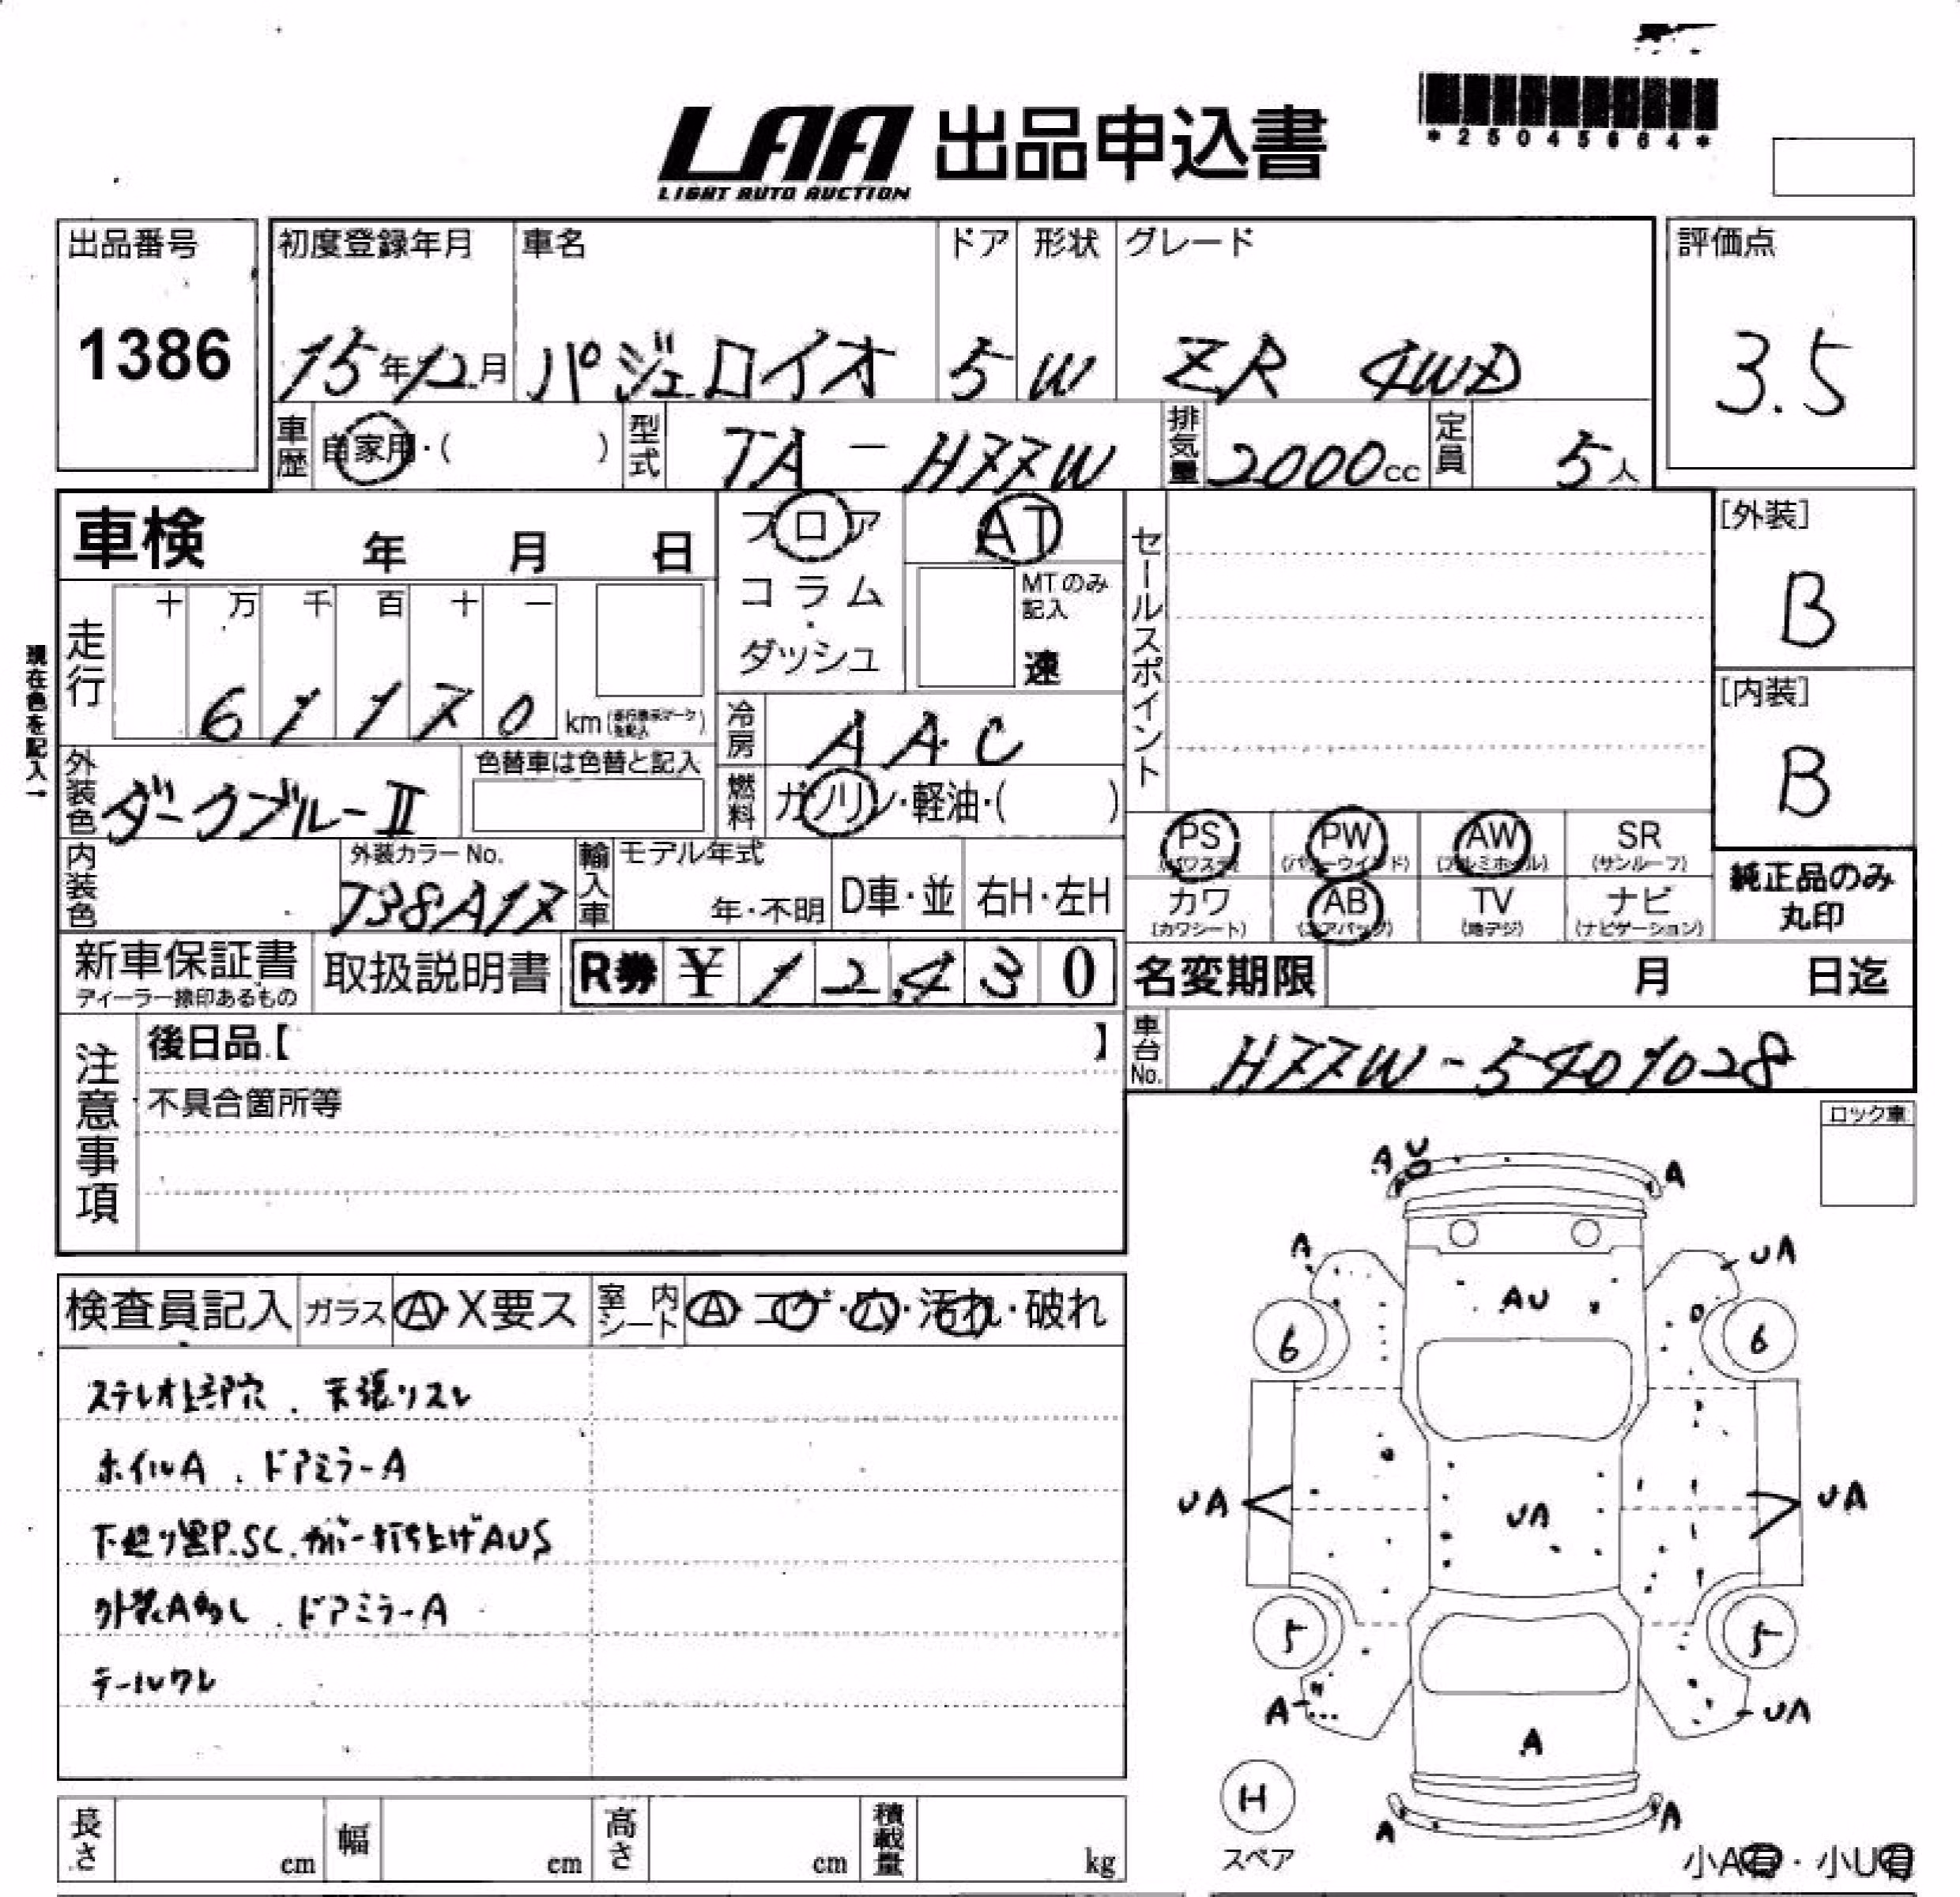 *25045664*
LAA 出品申込書
LIGHT AUTO AUCTION
出品番号
1386
初度登録年月
15年12月
車名
パジェロイオ
ドア
5
形状
W
グレード
ZR 4WD
評価点
3.5
車歴
自家用・( )
型式
TA-H77W
排気量
2000cc
定員
5人
車検 年 月 日
フロア
コラム
ダッシュ
AT
MTのみ記入
速
セールスポイント
[外装]
B
[内装]
B
現在色を記入→
走行
十 万 千 百 十 一
6 1 1 7 0 km
冷房
AAC
外装色
ダークブルーⅡ
色替車は色替と記入
燃料
ガソリン・軽油・( )
内装色
外装カラーNo.
T38A17
輸入車
モデル年式
年・不明
D車・並
右H・左H
PS
(パワステ)
PW
(パワーウインド)
AW
(アルミホイル)
SR
(サンルーフ)
カワ
(カワシート)
AB
(エアバッグ)
TV
(地デジ)
ナビ
(ナビゲーション)
純正品のみ
丸印
新車保証書
ディーラー捺印あるもの
取扱説明書
R券 ¥12,430
名変期限 月 日迄
車台No.
H77W-5401028
注意事項
後日品【 】
不具合箇所等
ロック車
検査員記入
ガラス
A・X要ス
室内シート
A・コゲ・穴・汚れ・破れ
ステレオ上部穴．天張リスレ
ホイルA．ドアミラーA
下廻り黒P.SC.カバー打ち上げAUS
外装A多し．ドアミラーA
テールワレ
A U
A
A
UA
AU
6
6
UA
UA
UA
5
5
A
UA
A
H
スペア
A
A
小A有・小U有
長さ cm
幅 cm
高さ cm
積載量 kg